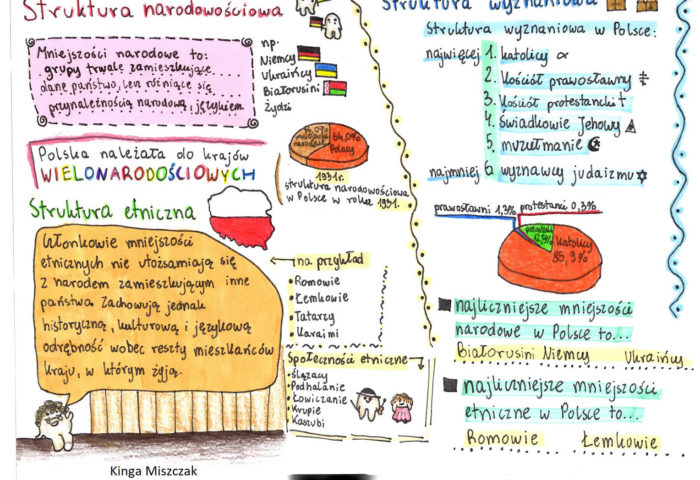 Struktura narodowościowa
Mniejszości narodowe to:
grupy trwale zamieszkujące....
dane państwo, lecz różniące się...
przynależnością narodową, językiem
np.
Niemcy
Ukraińcy
Białorusini
Żydzi
64,0%
Polacy
1931r.
struktura narodowościowa
w Polsce w roku 1931.
Polska należała do krajów
WIELONARODOŚCIOWYCH
Struktura etniczna
Członkowie mniejszości
etnicznych nie utożsamiają się
z narodem zamieszkującym inne
państwo. Zachowują jednak
historyczną, kulturową i językową
odrębność wobec reszty mieszkańców
kraju, w którym żyją.
na przykład
• Romowie
• Łemkowie
• Tatarzy
• Karaimi
Społeczności etniczne
• Ślązacy
• Podhalanie
• Łowiczanie
• Krupie
• Kaszubi
Kinga Miszczak
Struktura wyznaniowa
Struktura wyznaniowa w Polsce:
najwięcej 1. katolicy
2. Kościół prawosławny
3. Kościół protestancki
4. Świadkowie Jehowy
5. muzułmanie
najmniej 6. wyznawcy judaizmu
prawosławni 1,3% protestanci 0,3%
pozostali
12,5%
katolicy
85,9%
najliczniejsze mniejszości
narodowe w Polsce to...
Białorusini Niemcy Ukraińcy
najliczniejsze mniejszości
etniczne w Polsce to...
Romowie Łemkowie